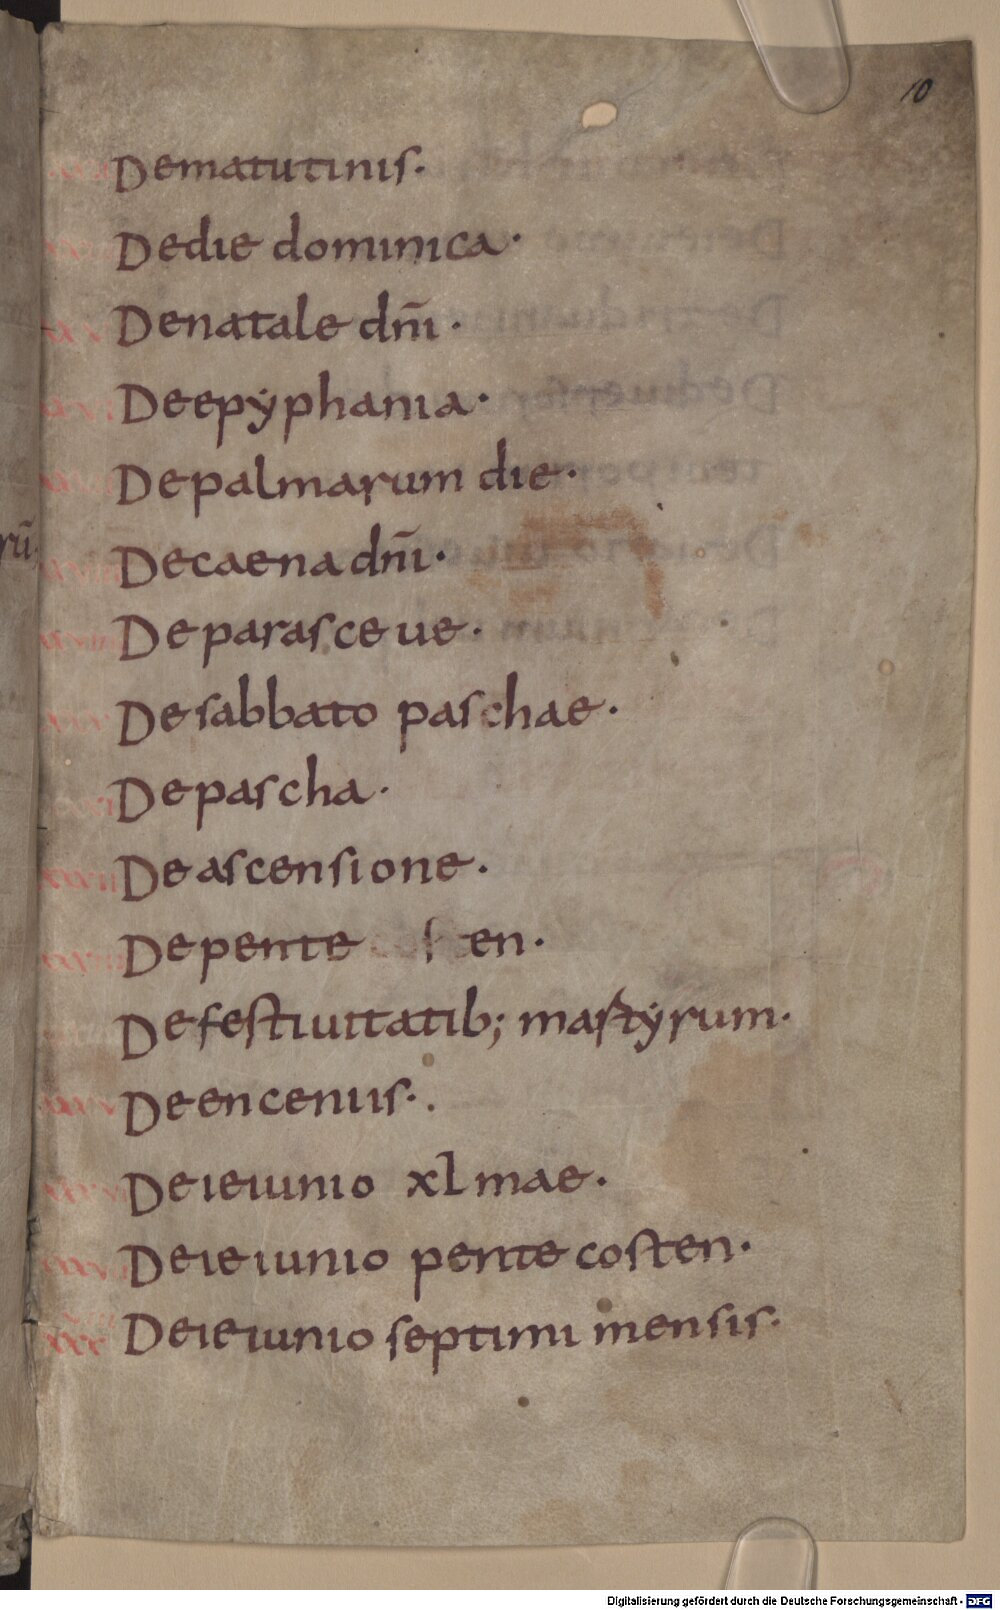 10
Dematutinis·
Dedie dominica·
Denatale dn̄i·
Deepẏphania·
Depalmarum die·
Decaena dn̄i·
Deparasceue·
Desabbato paschae·
Depascha·
Deascensione·
Depente s en·
Defestiuitatib; martẏrum·
Deenceniis·.
Deieiunio xlmae·
Deieiunio pentecosten·
xxx Deieiunio septimi mensis·
rū
Digitalisierung gefördert durch die Deutsche Forschungsgemeinschaft - DFG